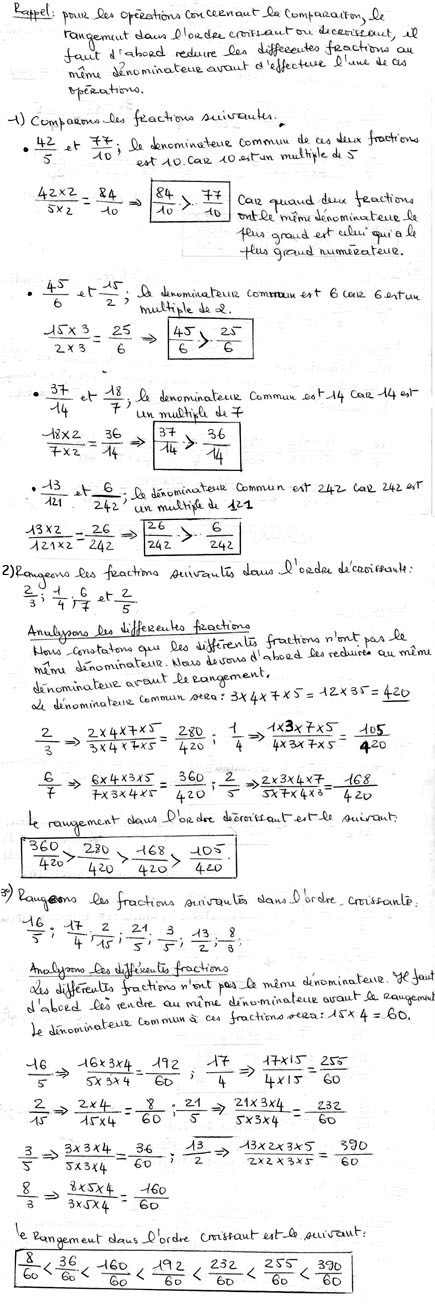 Rappel: pour les opérations concernant la Comparaison, le
rangement dans l'ordre croissant ou décroissant, il
faut d'abord reduire les differentes fractions au
même dénominateur avant d'effectuer l'une de ces
opérations.
1) Comparons les fractions suivantes.
• 42/5 et 77/10 ; le denominateur commun de ces deux fractions
est 10. Car 10 est un multiple de 5
42×2/5×2 = 84/10 ⇒ 84/10 > 77/10 Car quand deux fractions
ont le même dénominateur le
plus grand est celui qui a le
plus grand numérateur.
• 45/6 et 15/2 ; le denominateur commun est 6 car 6 est un
multiple de 2.
15×3/2×3 = 25/6 ⇒ 45/6 > 25/6
• 37/14 et 18/7 ; le denominateur commun est 14 car 14 est
un multiple de 7
18×2/7×2 = 36/14 ⇒ 37/14 > 36/14
• 13/121 et 6/242 ; le dénominateur commun est 242 car 242 est
un multiple de 121
13×2/121×2 = 26/242 ⇒ 26/242 > 6/242
2) Rangeons les fractions suivantes dans l'ordre décroissante:
2/3 ; 1/4 ; 6/7 et 2/5
Analysons les differentes fractions
Nous constatons que les différentes fractions n'ont pas le
même dénominateur. Nous devons d'abord les reduires au même
dénominateur avant le rangement.
Le dénominateur commun sera: 3×4×7×5 = 12×35 = 420
2/3 ⇒ 2×4×7×5/3×4×7×5 = 280/420 ; 1/4 ⇒ 1×3×7×5/4×3×7×5 = 105/420
6/7 ⇒ 6×4×3×5/7×3×4×5 = 360/420 ; 2/5 ⇒ 2×3×4×7/5×7×4×3 = 168/420
le rangement dans l'ordre décroissant est le suivant:
360/420 > 280/420 > 168/420 > 105/420.
3°) Rangeons les fractions suivantes dans l'ordre croissante:
16/5 ; 17/4 ; 2/15 ; 21/5 ; 3/5 ; 13/2 ; 8/3
Analysons les différentes fractions
Les différentes fractions n'ont pas le même dénominateur. Il faut
d'abord les rendre au même dénominateur avant le rangement
Le dénominateur commun à ces fractions sera: 15×4 = 60.
16/5 ⇒ 16×3×4/5×3×4 = 192/60 ; 17/4 ⇒ 17×15/4×15 = 255/60
2/15 ⇒ 2×4/15×4 = 8/60 ; 21/5 ⇒ 21×3×4/5×3×4 = 232/60
3/5 ⇒ 3×3×4/5×3×4 = 36/60 ; 13/2 ⇒ 13×2×3×5/2×2×3×5 = 390/60
8/3 ⇒ 8×5×4/3×5×4 = 160/60
le Rangement dans l'ordre croissant est le suivant:
8/60 < 36/60 < 160/60 < 192/60 < 232/60 < 255/60 < 390/60